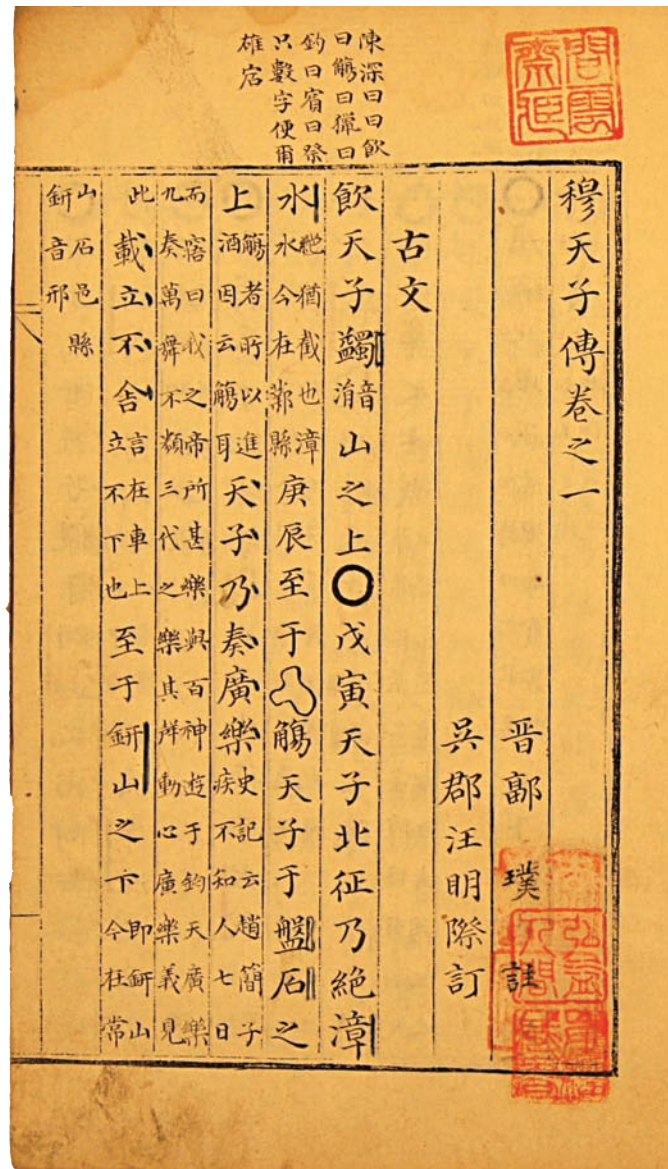 陳深曰曰飲
曰觴曰獵曰
釣曰賓曰祭
只數字便爾
雄宕
穆天子傳卷之一
晋郭璞註
吳郡汪明際訂
古文
飲天子蠲音涓山之上〇戊寅天子北征乃絶漳
水絶猶截也漳水今在鄴縣庚辰至于觴天子于盤石之
上觴者所以進酒因云觴耳天子乃奏廣樂史記云趙簡子疾不知人七日
而寤曰我之帝所甚樂與百神遊于鈞天廣樂九奏萬舞不類三代之樂其聲動心廣樂義見
此載立不舍言在車上立不下也至于鈃山之下即鈃山今在常
山石邑縣鈃音邢